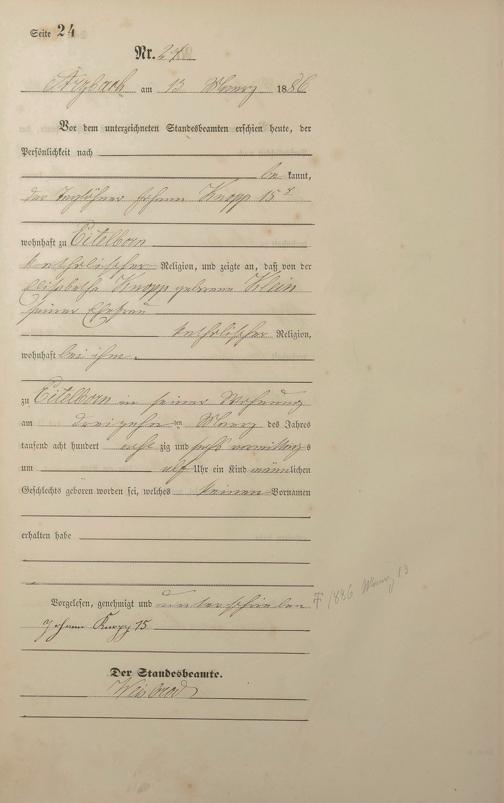 Seite 24
Nr. 24
Arzbach am 13 Maerz 1886
Vor dem unterzeichneten Standesbeamten erschien heute, der
Persönlichkeit nach
be kannt,
der Taglöhner Johann Knopp 15r
wohnhaft zu Eitelborn
katholischer Religion, und zeigte an, daß von der
Elisabetha Knopp geborene Klein
seiner Ehefrau
katholischer Religion,
wohnhaft bei ihm
zu Eitelborn in seiner Wohnung
am dreizehn ten Maerz des Jahres
tausend acht hundert acht zig und sechs vormittag s
um elf Uhr ein Kind männlichen
Geschlechts geboren worden sei, welches keinen Vornamen
erhalten habe
Vorgelesen, genehmigt und unterschrieben
1886 Maerz 13
Johann Knopp 15
Der Standesbeamte.